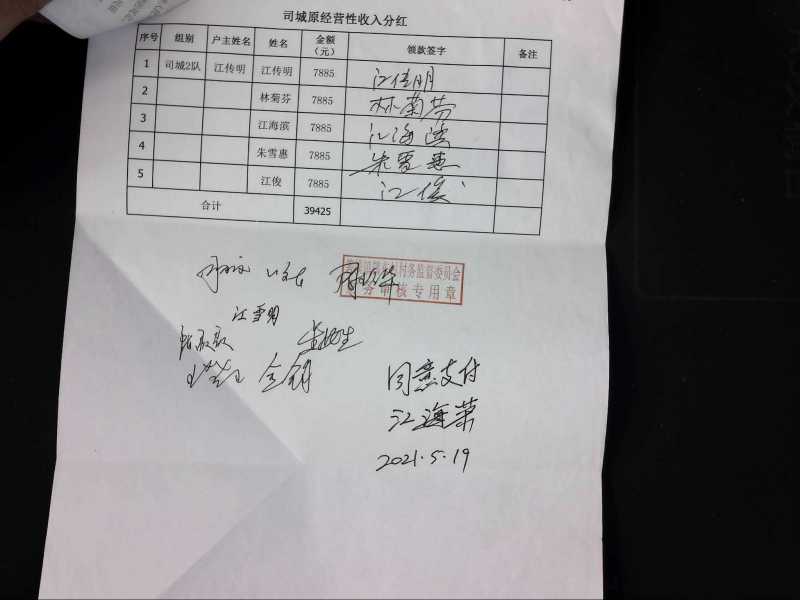 司城原经营性收入分红
序号 组别 户主姓名 姓名 金额（元） 领款签字 备注
1 司城2队 江传明 江传明 7885 江传明
2 林菊芬 7885 林菊芬
3 江海滨 7885 江海滨
4 朱雪惠 7885 朱雪惠
5 江俊 7885 江俊
合计 39425
村务监督委员会
审核专用章
江雪明
同意支付
江海荣
2021.5.19